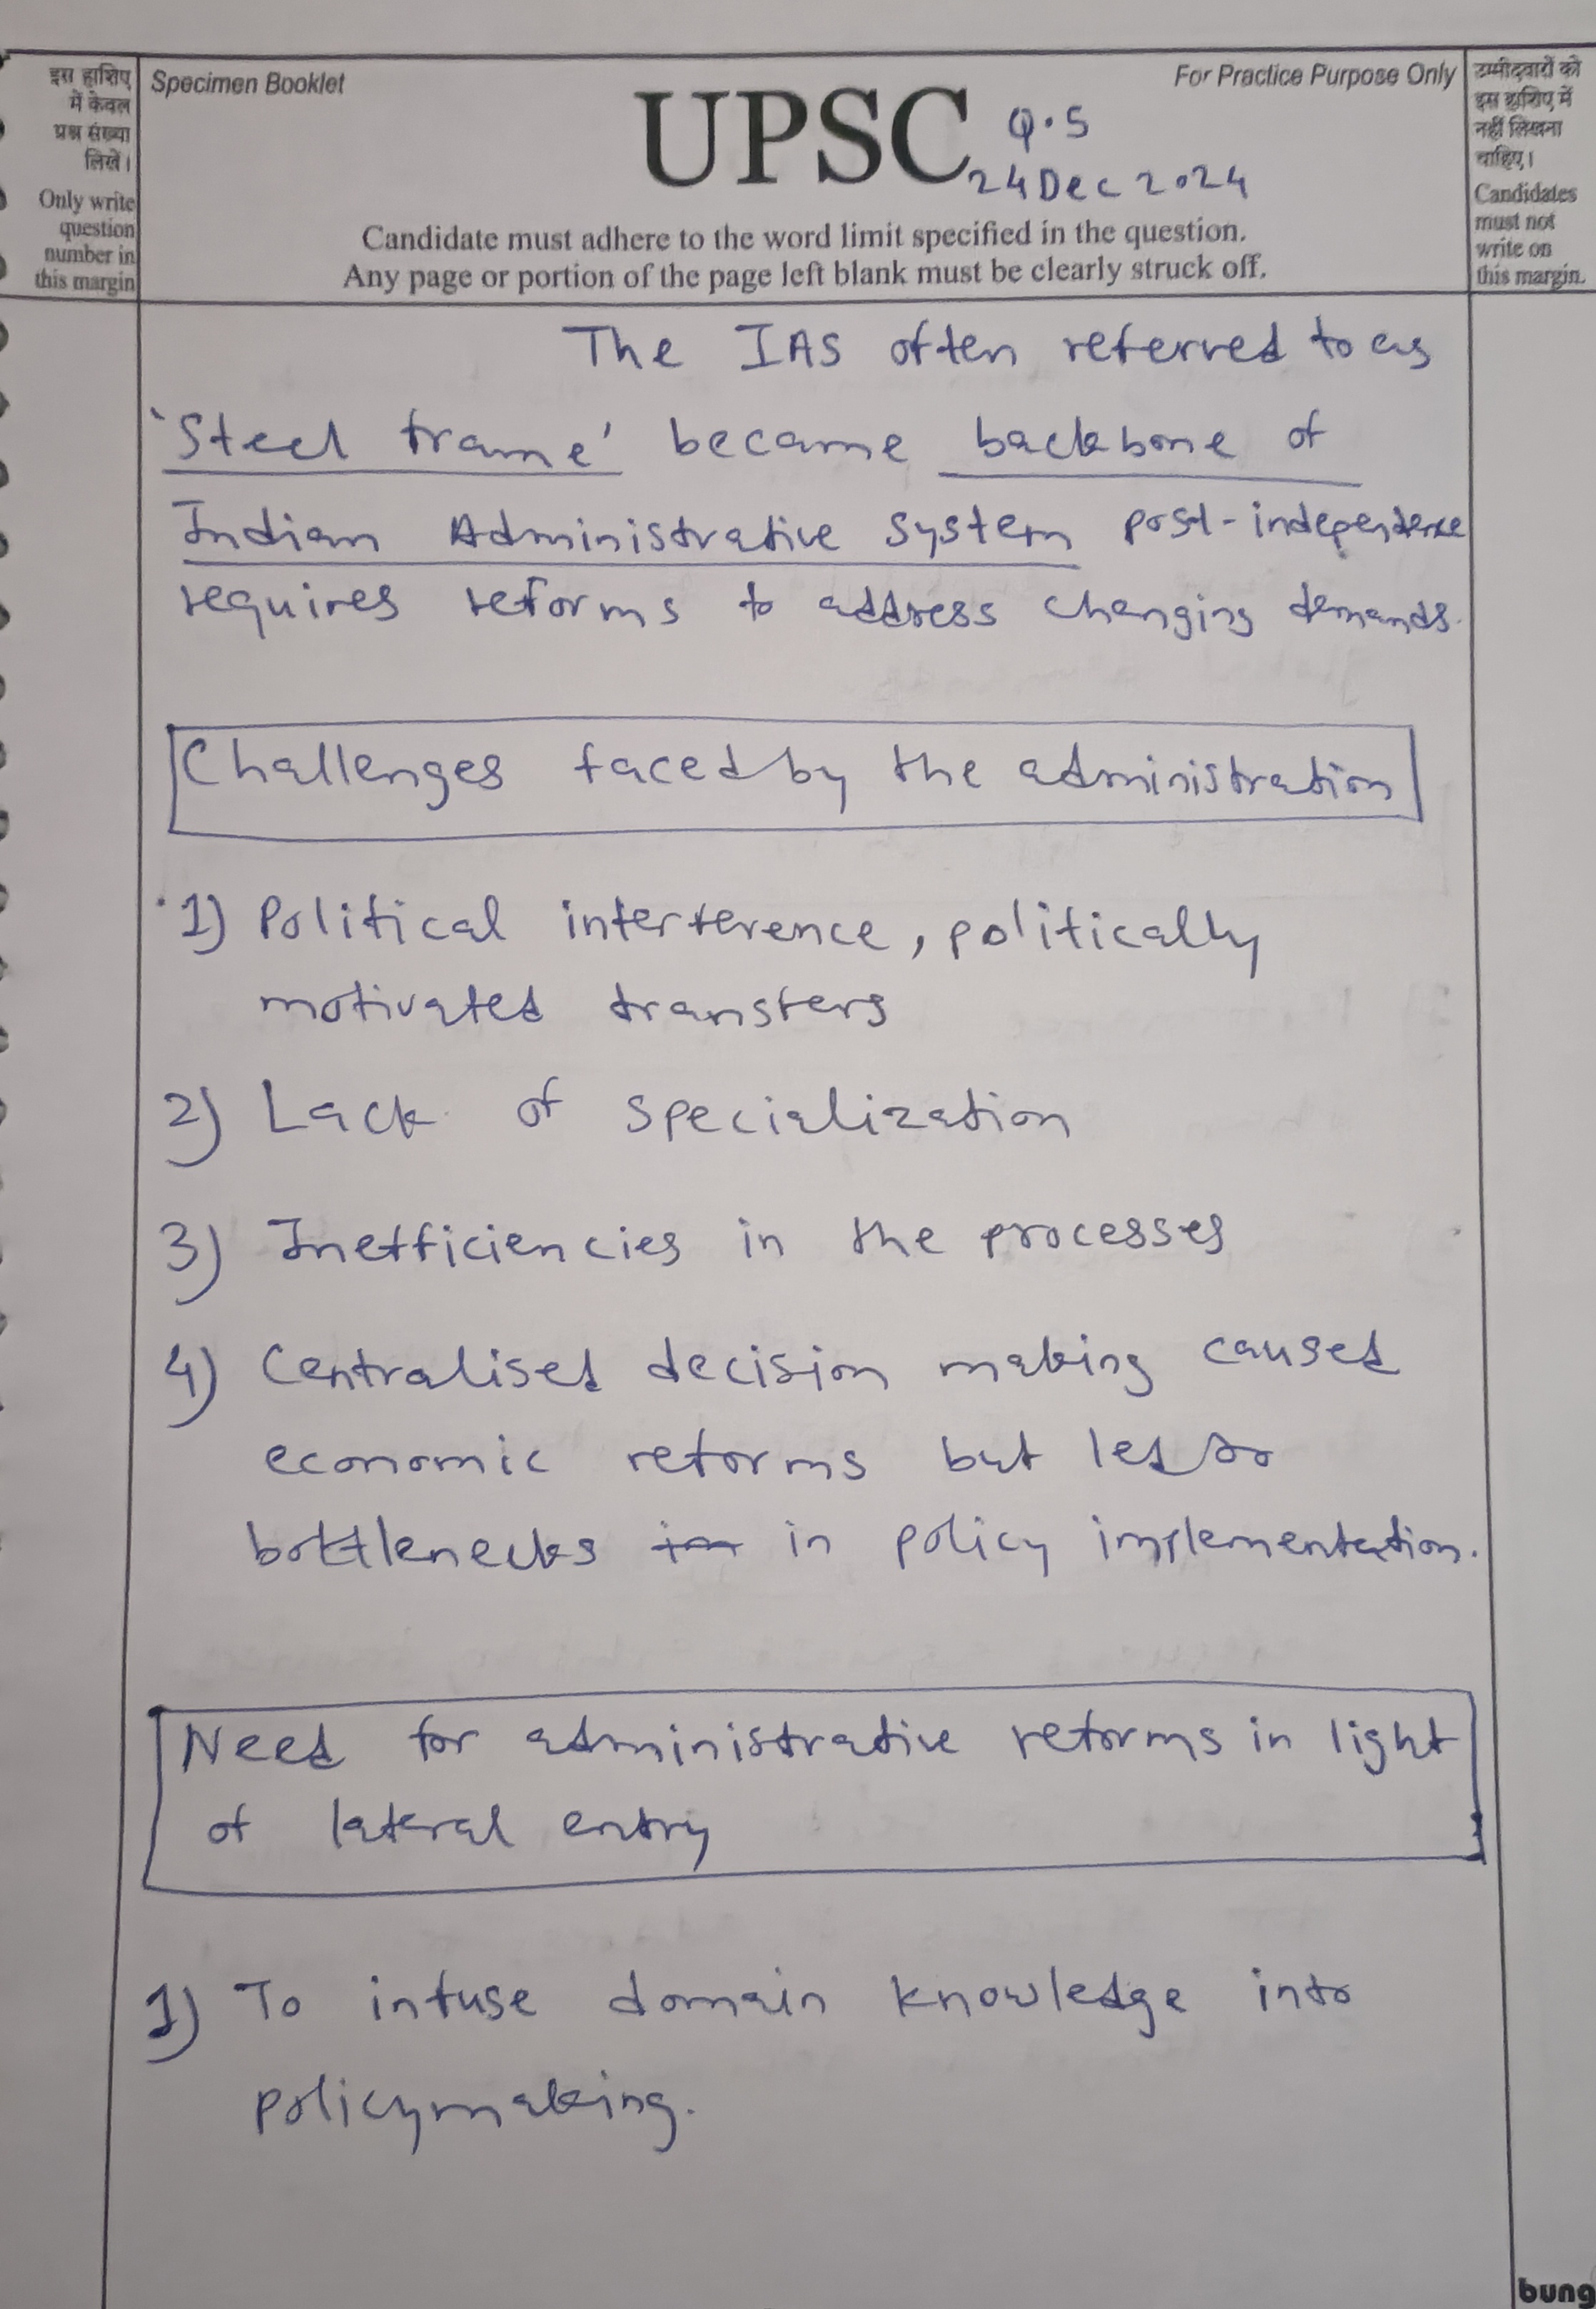 इस हाशिए
में केवल
प्रश्न संख्या
लिखें।
Only write
question
number in
this margin
Specimen Booklet
For Practice Purpose Only
UPSC
Q.5
24 Dec 2024
Candidate must adhere to the word limit specified in the question.
Any page or portion of the page left blank must be clearly struck off.
उम्मीदवारों को
इस हाशिए में
नहीं लिखना
चाहिए।
Candidates
must not
write on
this margin.
The IAS often referred to as
'Steel frame' became backbone of
Indian Administrative System post-independence
requires reforms to address changing demands.
Challenges faced by the administration
1) Political interference, politically
motivated transfers
2) Lack of specialization
3) Inefficiencies in the processes
4) Centralised decision making caused
economic reforms but led to
bottlenecks in policy implementation.
Need for administrative reforms in light
of lateral entry
1) To infuse domain knowledge into
policymaking.
bung